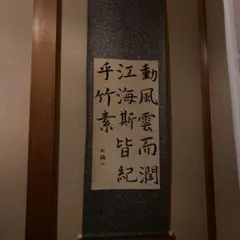 動風雲而潤
江海斯皆紀
乎竹素